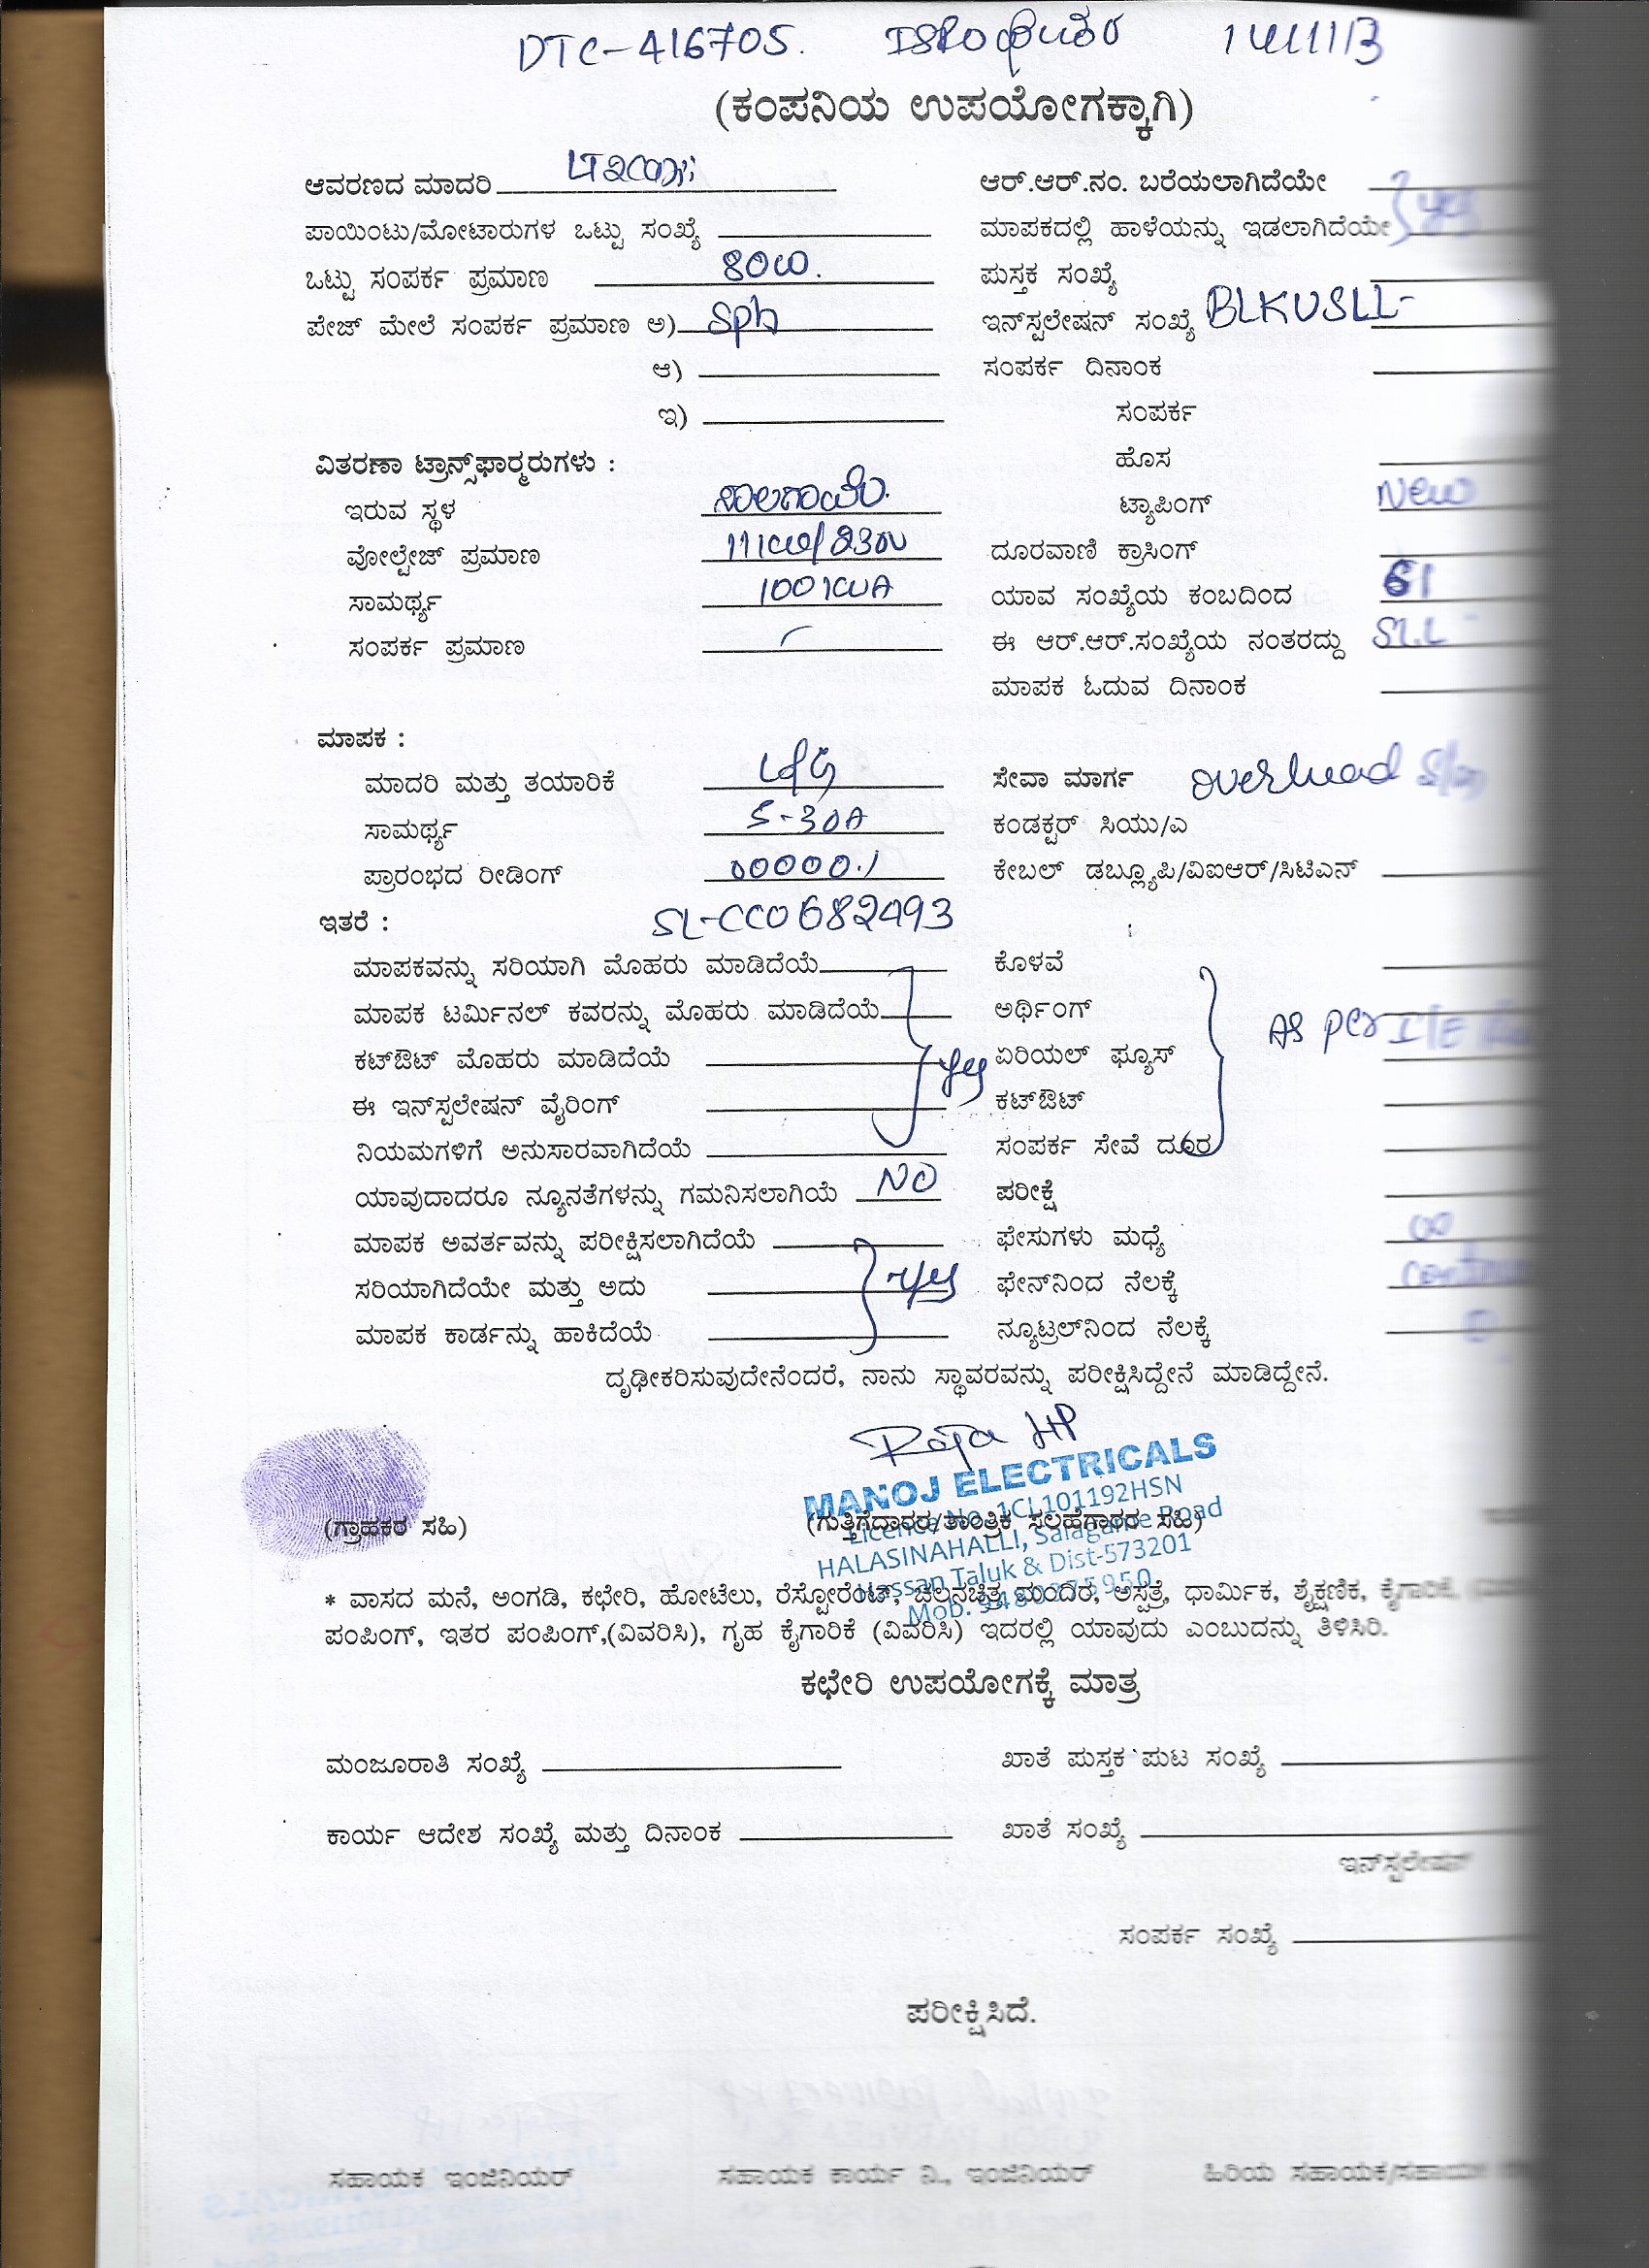 DTC-416705. ISRO ಫೀಡರ್ 14/11/13
(ಕಂಪನಿಯ ಉಪಯೋಗಕ್ಕಾಗಿ)
ಆವರಣದ ಮಾದರಿ ಆರ್.ಆರ್.ನಂ. ಬರೆಯಲಾಗಿದೆಯೇ
ಪಾಯಿಂಟು/ಮೋಟಾರುಗಳ ಒಟ್ಟು ಸಂಖ್ಯೆ ಮಾಪಕದಲ್ಲಿ ಹಾಳೆಯನ್ನು ಇಡಲಾಗಿದೆಯೇ yes
ಒಟ್ಟು ಸಂಪರ್ಕ ಪ್ರಮಾಣ 80W. ಪುಸ್ತಕ ಸಂಖ್ಯೆ
ಪೇಜ್ ಮೇಲೆ ಸಂಪರ್ಕ ಪ್ರಮಾಣ ಅ) Sph ಇನ್‌ಸ್ಟಲೇಷನ್ ಸಂಖ್ಯೆ BLKUSLL-
ಆ) ಸಂಪರ್ಕ ದಿನಾಂಕ
ಇ) ಸಂಪರ್ಕ
ವಿತರಣಾ ಟ್ರಾನ್ಸ್‌ಫಾರ‍್ಮರುಗಳು : ಹೊಸ
ಇರುವ ಸ್ಥಳ ಸಾಲಗಾಮೆ. ಟ್ಯಾಪಿಂಗ್ New
ವೋಲ್ಟೇಜ್ ಪ್ರಮಾಣ 11KV/230V ದೂರವಾಣಿ ಕ್ರಾಸಿಂಗ್
ಸಾಮರ್ಥ್ಯ 100KVA ಯಾವ ಸಂಖ್ಯೆಯ ಕಂಬದಿಂದ
ಸಂಪರ್ಕ ಪ್ರಮಾಣ ಈ ಆರ್.ಆರ್.ಸಂಖ್ಯೆಯ ನಂತರದ್ದು SLL
ಮಾಪಕ ಓದುವ ದಿನಾಂಕ
ಮಾಪಕ :
ಮಾದರಿ ಮತ್ತು ತಯಾರಿಕೆ L&G ಸೇವಾ ಮಾರ್ಗ overhead
ಸಾಮರ್ಥ್ಯ 5-30A ಕಂಡಕ್ಟರ್ ಸಿಯು/ಎ
ಪ್ರಾರಂಭದ ರೀಡಿಂಗ್ 00000.1 ಕೇಬಲ್ ಡಬ್ಲ್ಯೂಪಿ/ವಿಐಆರ್/ಸಿಟಿಎನ್
ಇತರೆ : SL-CC0682493
ಮಾಪಕವನ್ನು ಸರಿಯಾಗಿ ಮೊಹರು ಮಾಡಿದೆಯೆ ಕೊಳವೆ
ಮಾಪಕ ಟರ್ಮಿನಲ್ ಕವರನ್ನು ಮೊಹರು ಮಾಡಿದೆಯೆ ಅರ್ಥಿಂಗ್ As per
ಕಟ್‌ಔಟ್ ಮೊಹರು ಮಾಡಿದೆಯೆ yes ಏರಿಯಲ್ ಫ್ಯೂಸ್
ಈ ಇನ್‌ಸ್ಟಲೇಷನ್ ವೈರಿಂಗ್ ಕಟ್‌ಔಟ್
ನಿಯಮಗಳಿಗೆ ಅನುಸಾರವಾಗಿದೆಯೆ ಸಂಪರ್ಕ ಸೇವೆ ದೂರ
ಯಾವುದಾದರೂ ನ್ಯೂನತೆಗಳನ್ನು ಗಮನಿಸಲಾಗಿಯೆ NO ಪರೀಕ್ಷೆ
ಮಾಪಕ ಅವರ್ತವನ್ನು ಪರೀಕ್ಷಿಸಲಾಗಿದೆಯೆ ಫೇಸುಗಳು ಮಧ್ಯೆ
ಸರಿಯಾಗಿದೆಯೇ ಮತ್ತು ಅದು yes ಫೇನ್‌ನಿಂದ ನೆಲಕ್ಕೆ
ಮಾಪಕ ಕಾರ್ಡನ್ನು ಹಾಕಿದೆಯೆ ನ್ಯೂಟ್ರಲ್‌ನಿಂದ ನೆಲಕ್ಕೆ
ದೃಢೀಕರಿಸುವುದೇನೆಂದರೆ, ನಾನು ಸ್ಥಾವರವನ್ನು ಪರೀಕ್ಷಿಸಿದ್ದೇನೆ ಮಾಡಿದ್ದೇನೆ.
Raja HP
MANOJ ELECTRICALS
Licence No. 1CL101192HSN
(ಗ್ರಾಹಕರ ಸಹಿ) (ಗುತ್ತಿಗೆದಾರರ/ತಾಂತ್ರಿಕ ಸಲಹೆಗಾರರ ಸಹಿ)
HALASINAHALLI, Salagame Road
Hassan Taluk & Dist-573201
Mob.
* ವಾಸದ ಮನೆ, ಅಂಗಡಿ, ಕಛೇರಿ, ಹೋಟೆಲು, ರೆಸ್ಟೋರೆಂಟ್, ಚಲನಚಿತ್ರ ಮಂದಿರ, ಅಸ್ಪತ್ರೆ, ಧಾರ್ಮಿಕ, ಶೈಕ್ಷಣಿಕ, ಕೈಗಾರಿಕೆ,
ಪಂಪಿಂಗ್, ಇತರ ಪಂಪಿಂಗ್,(ವಿವರಿಸಿ), ಗೃಹ ಕೈಗಾರಿಕೆ (ವಿವರಿಸಿ) ಇದರಲ್ಲಿ ಯಾವುದು ಎಂಬುದನ್ನು ತಿಳಿಸಿರಿ.
ಕಛೇರಿ ಉಪಯೋಗಕ್ಕೆ ಮಾತ್ರ
ಮಂಜೂರಾತಿ ಸಂಖ್ಯೆ ಖಾತೆ ಪುಸ್ತಕ ಪುಟ ಸಂಖ್ಯೆ
ಕಾರ್ಯ ಆದೇಶ ಸಂಖ್ಯೆ ಮತ್ತು ದಿನಾಂಕ ಖಾತೆ ಸಂಖ್ಯೆ
ಇನ್‌ಸ್ಟಲೇಷನ್
ಸಂಪರ್ಕ ಸಂಖ್ಯೆ
ಪರೀಕ್ಷಿಸಿದೆ.
ಸಹಾಯಕ ಇಂಜಿನಿಯರ್ ಸಹಾಯಕ ಕಾರ್ಯ ನಿ., ಇಂಜಿನಿಯರ್ ಹಿರಿಯ ಸಹಾಯಕ/ಸಹಾಯಕ